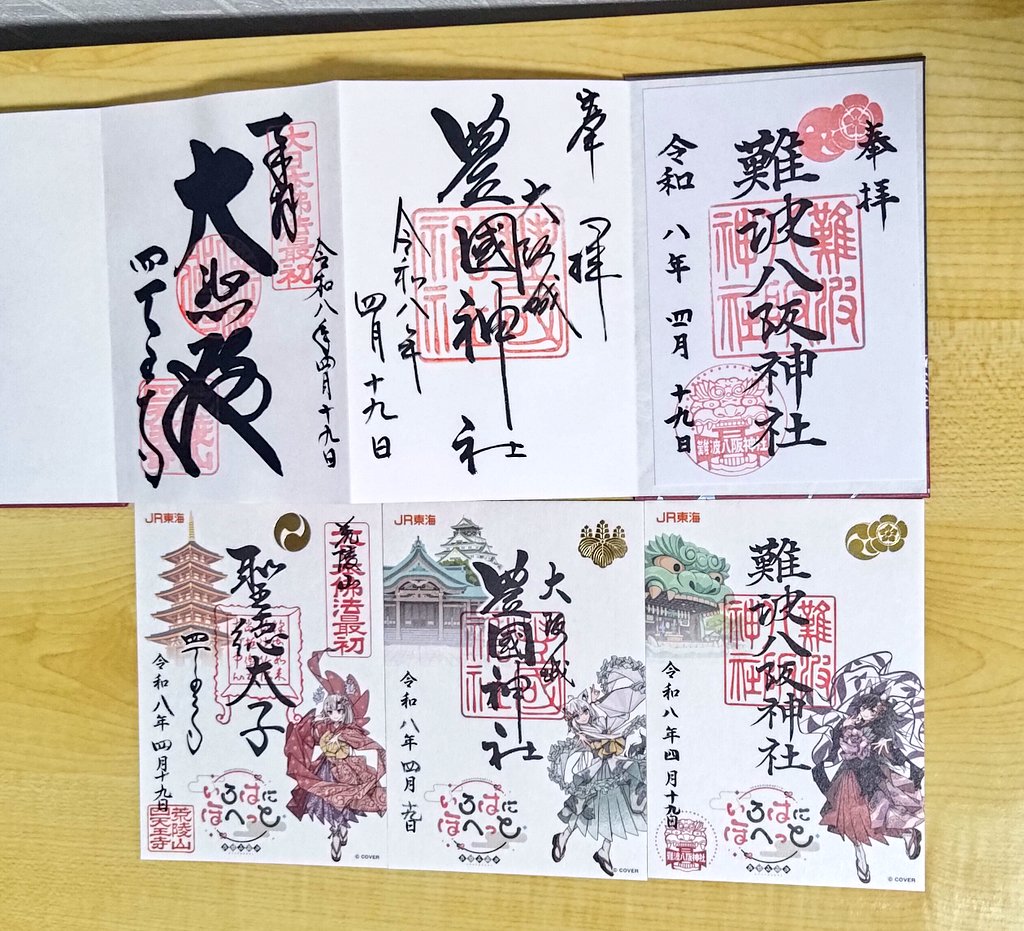 奉拝
難波八阪神社
令和八年四月十九日
難波八阪神社
難波八阪神社
奉拝
大阪城
豊國神社
令和八年
四月十九日
奉拝
大日本佛法最初
令和八年四月十九日
大悲殿
四天王寺
JR東海
聖徳太子
荒陵山
四天王寺
令和八年四月十九日
荒陵山
四天王寺
いろはにほへっと
© COVER
JR東海
大阪城
豊國神社
令和八年四月十九日
いろはにほへっと
© COVER
JR東海
難波八阪神社
難波八阪神社
令和八年四月十九日
難波八阪神社
いろはにほへっと
© COVER